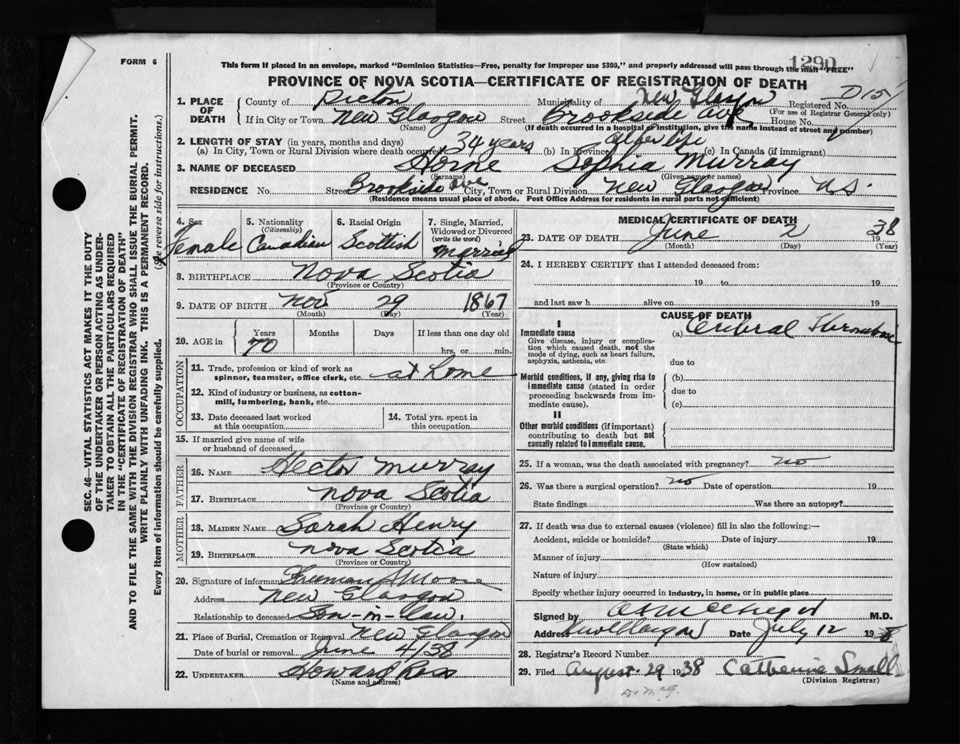 FORM 6
This form if placed in an envelope, marked "Dominion Statistics—Free, penalty for improper use $300," and properly addressed will pass through the mail "FREE"
1290
PROVINCE OF NOVA SCOTIA—CERTIFICATE OF REGISTRATION OF DEATH
1. PLACE OF DEATH County of Pictou Municipality of New Glasgow Registered No.
(For use of Registrar General only)
If in City or Town New Glasgow Street Brookside Ave House No.
(Name) (If death occurred in a hospital or institution, give the name instead of street and number)
2. LENGTH OF STAY (in years, months and days)
(a) In City, Town or Rural Division where death occurred 34 years (b) In Province all her life (c) In Canada (if immigrant)
3. NAME OF DECEASED Horne Sophia Murray
(Surname) (Given name or names)
RESIDENCE No. Street Brookside Ave City, Town or Rural Division New Glasgow Province N.S.
(Residence means usual place of abode. Post Office Address for residents in rural parts not sufficient)
4. Sex Female
5. Nationality (Citizenship) Canadian
6. Racial Origin Scottish
7. Single, Married, Widowed or Divorced (write the word) Married
8. BIRTHPLACE Nova Scotia
(Province or Country)
9. DATE OF BIRTH Nov 29 1867
(Month) (Day) (Year)
10. AGE in Years Months Days If less than one day old
70 hrs. or min.
OCCUPATION
11. Trade, profession or kind of work as spinner, teamster, office clerk, etc. at home
12. Kind of industry or business, as cotton-mill, lumbering, bank, etc.
13. Date deceased last worked at this occupation
14. Total yrs. spent in this occupation
15. If married give name of wife or husband of deceased
FATHER
16. NAME Hector Murray
17. BIRTHPLACE Nova Scotia
(Province or Country)
MOTHER
18. MAIDEN NAME Sarah Henry
19. BIRTHPLACE Nova Scotia
(Province or Country)
20. Signature of informant Freeman
Address New Glasgow
Relationship to deceased Son-in-law.
21. Place of Burial, Cremation or Removal New Glasgow
Date of burial or removal June 4/38
22. UNDERTAKER Howard Ross
(Name and address)
MEDICAL CERTIFICATE OF DEATH
23. DATE OF DEATH June 2 1938
(Month) (Day) (Year)
24. I HEREBY CERTIFY that I attended deceased from:
19 to 19
and last saw h alive on 19
CAUSE OF DEATH
I
Immediate cause (a) Cerebral Thrombosis
Give disease, injury or complication which caused death, not the mode of dying, such as heart failure, asphyxia, asthenia, etc.
due to
Morbid conditions, if any, giving rise to immediate cause (stated in order proceeding backwards from immediate cause).
(b)
due to
(c)
II
Other morbid conditions (if important) contributing to death but not causally related to immediate cause.
25. If a woman, was the death associated with pregnancy? no
26. Was there a surgical operation? no Date of operation 19
State findings Was there an autopsy?
27. If death was due to external causes (violence) fill in also the following:—
Accident, suicide or homicide? Date of injury 19
(State which)
Manner of injury
(How sustained)
Nature of injury
Specify whether injury occurred in Industry, in home, or in public place
Signed by M.D.
Address New Glasgow Date July 12 19
28. Registrar's Record Number
29. Filed August 29 1938 Catherine Small
(Division Registrar)
SEC. 46—VITAL STATISTICS ACT MAKES IT THE DUTY
OF THE UNDERTAKER OR PERSON ACTING AS UNDER-
TAKER TO OBTAIN ALL THE PARTICULARS REQUIRED
IN THE "CERTIFICATE OF REGISTRATION OF DEATH"
AND TO FILE THE SAME WITH THE DIVISION REGISTRAR WHO SHALL ISSUE THE BURIAL PERMIT.
WRITE PLAINLY WITH UNFADING INK. THIS IS A PERMANENT RECORD.
Every item of information should be carefully supplied. (See reverse side for instructions.)